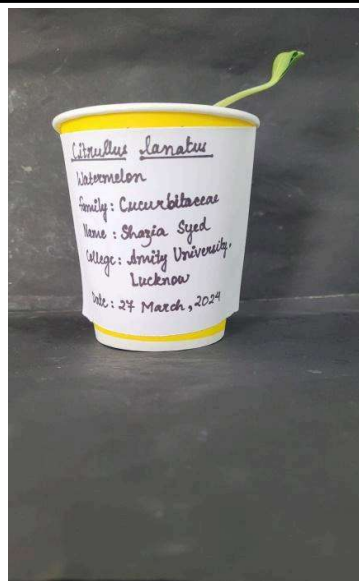 Citrullus lanatus
Watermelon
Family: Cucurbitaceae
Name: Shazia Syed
College: Amity University,
Lucknow
Date: 27 March, 2024